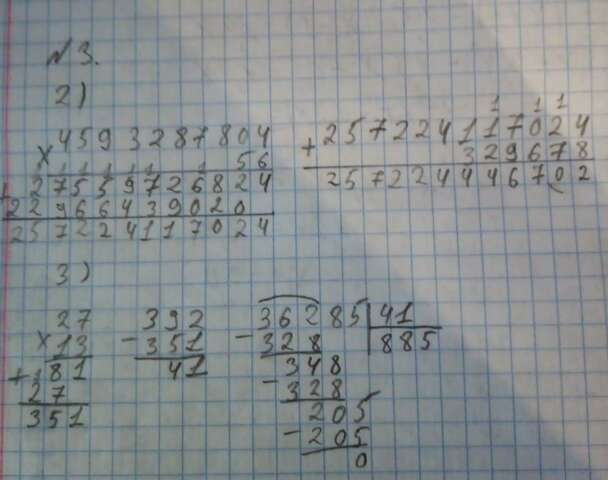 N3.
2)
4593287804
× 56
1 1 1 1 1 1
+ 27559726824
22966439020
257224117024
1 1 1
257224117024
+ 329678
257224446702
3)
27
× 13
+ 81
27
351
392
- 351
41
36285 | 41
- 328 | 885
348
- 328
205
- 205
0